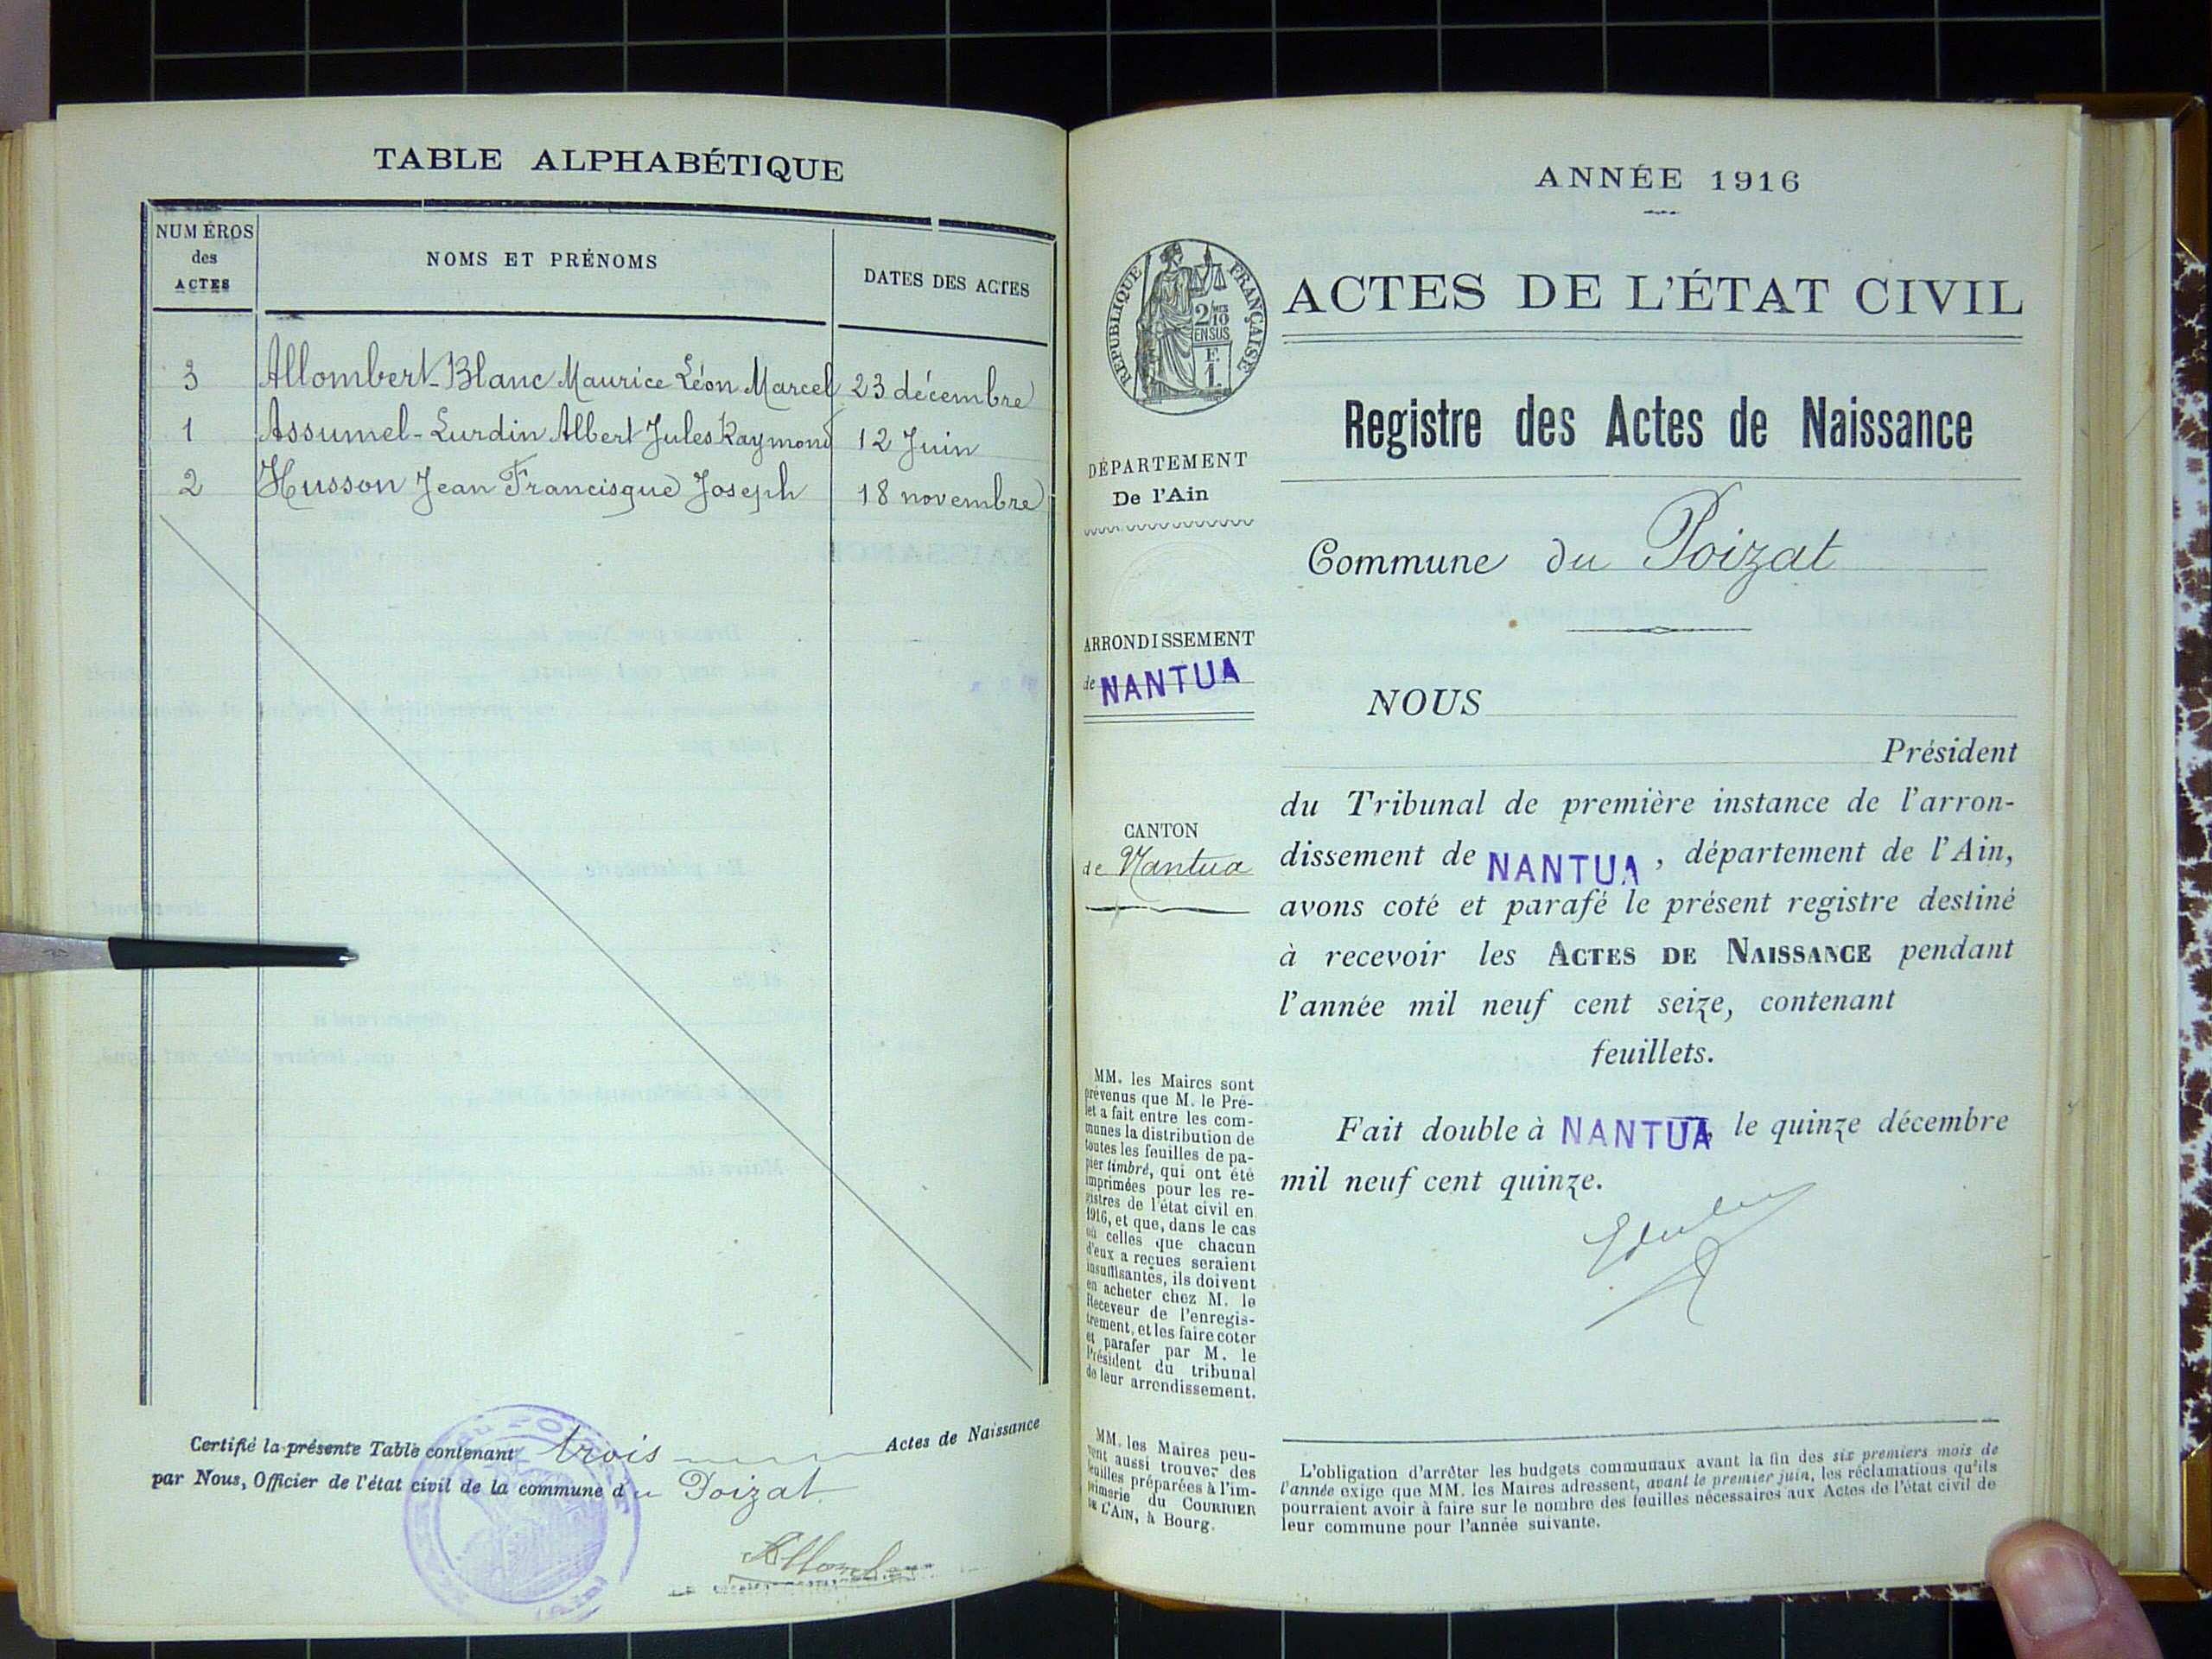 TABLE ALPHABÉTIQUE
NUMÉROS
des
ACTES
NOMS ET PRÉNOMS
DATES DES ACTES
3 Allombert-Blanc Maurice Léon Marcel 23 décembre
1 Assumel-Lurdin Albert Jules Raymond 12 Juin
2 Husson Jean Francisque Joseph 18 novembre
Certifié la présente Table contenant trois Actes de Naissance
par Nous, Officier de l'état civil de la commune du Poizat
ANNÉE 1916
RÉPUBLIQUE FRANÇAISE
2/10
EN SUS
F.
1.
ACTES DE L'ÉTAT CIVIL
Registre des Actes de Naissance
DÉPARTEMENT
De l'Ain
Commune du Poizat
ARRONDISSEMENT
de NANTUA
CANTON
de Nantua
NOUS
Président
du Tribunal de première instance de l'arron-
dissement de NANTUA, département de l'Ain,
avons coté et parafé le présent registre destiné
à recevoir les ACTES DE NAISSANCE pendant
l'année mil neuf cent seize, contenant
feuillets.
Fait double à NANTUA, le quinze décembre
mil neuf cent quinze.
MM. les Maires sont
prévenus que M. le Pré-
fet a fait entre les com-
munes la distribution de
toutes les feuilles de pa-
pier timbré, qui ont été
imprimées pour les re-
gistres de l'état civil en
1916, et que, dans le cas
où celles que chacun
d'eux a reçues seraient
insuffisantes, ils doivent
en acheter chez M. le
Receveur de l'enregis-
trement, et les faire coter
et parafer par M. le
Président du tribunal
de leur arrondissement.
MM. les Maires peu-
vent aussi trouver des
feuilles préparées à l'im-
primerie du COURRIER
DE L'AIN, à Bourg.
L'obligation d'arrêter les budgets communaux avant la fin des six premiers mois de
l'année exige que MM. les Maires adressent, avant le premier juin, les réclamations qu'ils
pourraient avoir à faire sur le nombre des feuilles nécessaires aux Actes de l'état civil de
leur commune pour l'année suivante.